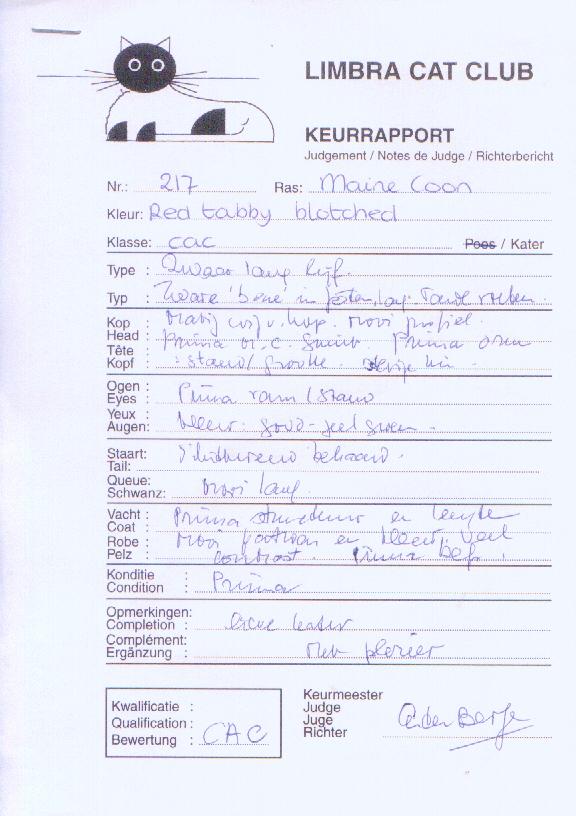 LIMBRA CAT CLUB
KEURRAPPORT
Judgement / Notes de Judge / Richterbericht
Nr.: 217 Ras: Maine Coon
Kleur: Red tabby blotched
Klasse: CAC Poes / Kater
Type : Zwaar lang lijf.
Typ : Zware 'bene' in
Kop : Mooi profiel.
Head : Prima M.C. Prima oren
Tête : stand / grootte.
Kopf :
Ogen : Prima vorm / stand
Eyes :
Yeux : kleur: goud-geel groen.
Augen:
Staart: behaard.
Tail:
Queue: Mooi lang.
Schwanz:
Vacht : Prima structuur en lengte
Coat :
Robe : Mooi patroon en kleur, veel
Pelz : contrast. Prima
Konditie :
Condition : Prima
Opmerkingen:
Completion : Lieve kater
Complément:
Ergänzung : met plezier
Kwalificatie :
Qualification :
Bewertung : CAC
Keurmeester
Judge
Juge
Richter